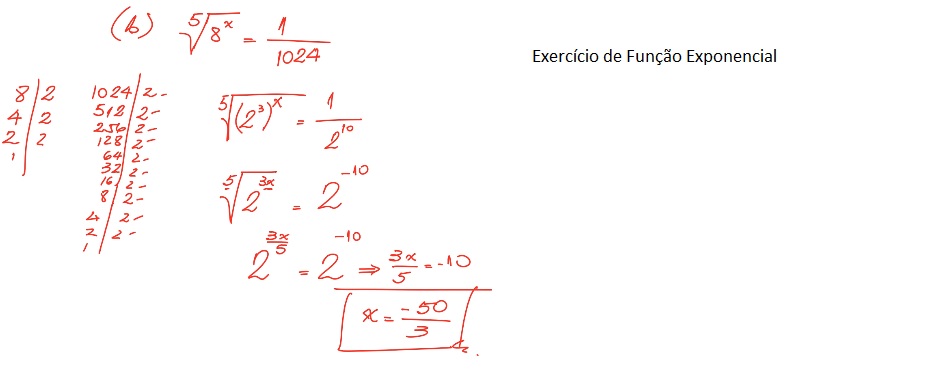 (b) ⁵√8ˣ = 1/1024
Exercício de Função Exponencial
8 | 2
4 | 2
2 | 2
1 |
1024 | 2 -
512 | 2 -
256 | 2 -
128 | 2 -
64 | 2 -
32 | 2 -
16 | 2 -
8 | 2 -
4 | 2 -
2 | 2 -
1 |
⁵√(2³)ˣ = 1/2¹⁰
⁵√2³ˣ = 2⁻¹⁰
2^(3x/5) = 2⁻¹⁰ ⇒ 3x/5 = -10
x = -50/3